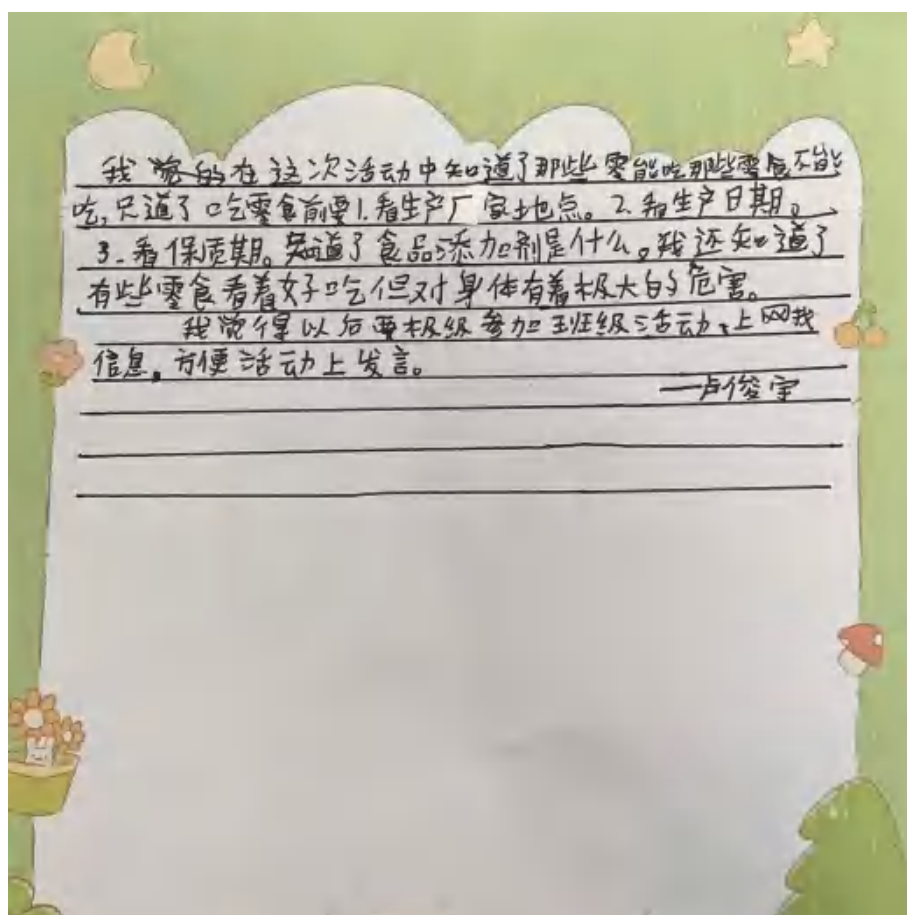 我觉的在这次活动中知道了那些零能吃那些零食不能
吃,只道了吃零食前要1.看生产厂家地点。2.看生产日期。
3.看保质期。知道了食品添加剂是什么。我还知道了
有些零食看着好吃但对身体有着极大的危害。
我觉得以后要极级参加班级活动、上网找
信息,方便活动上发言。
—卢俊宇